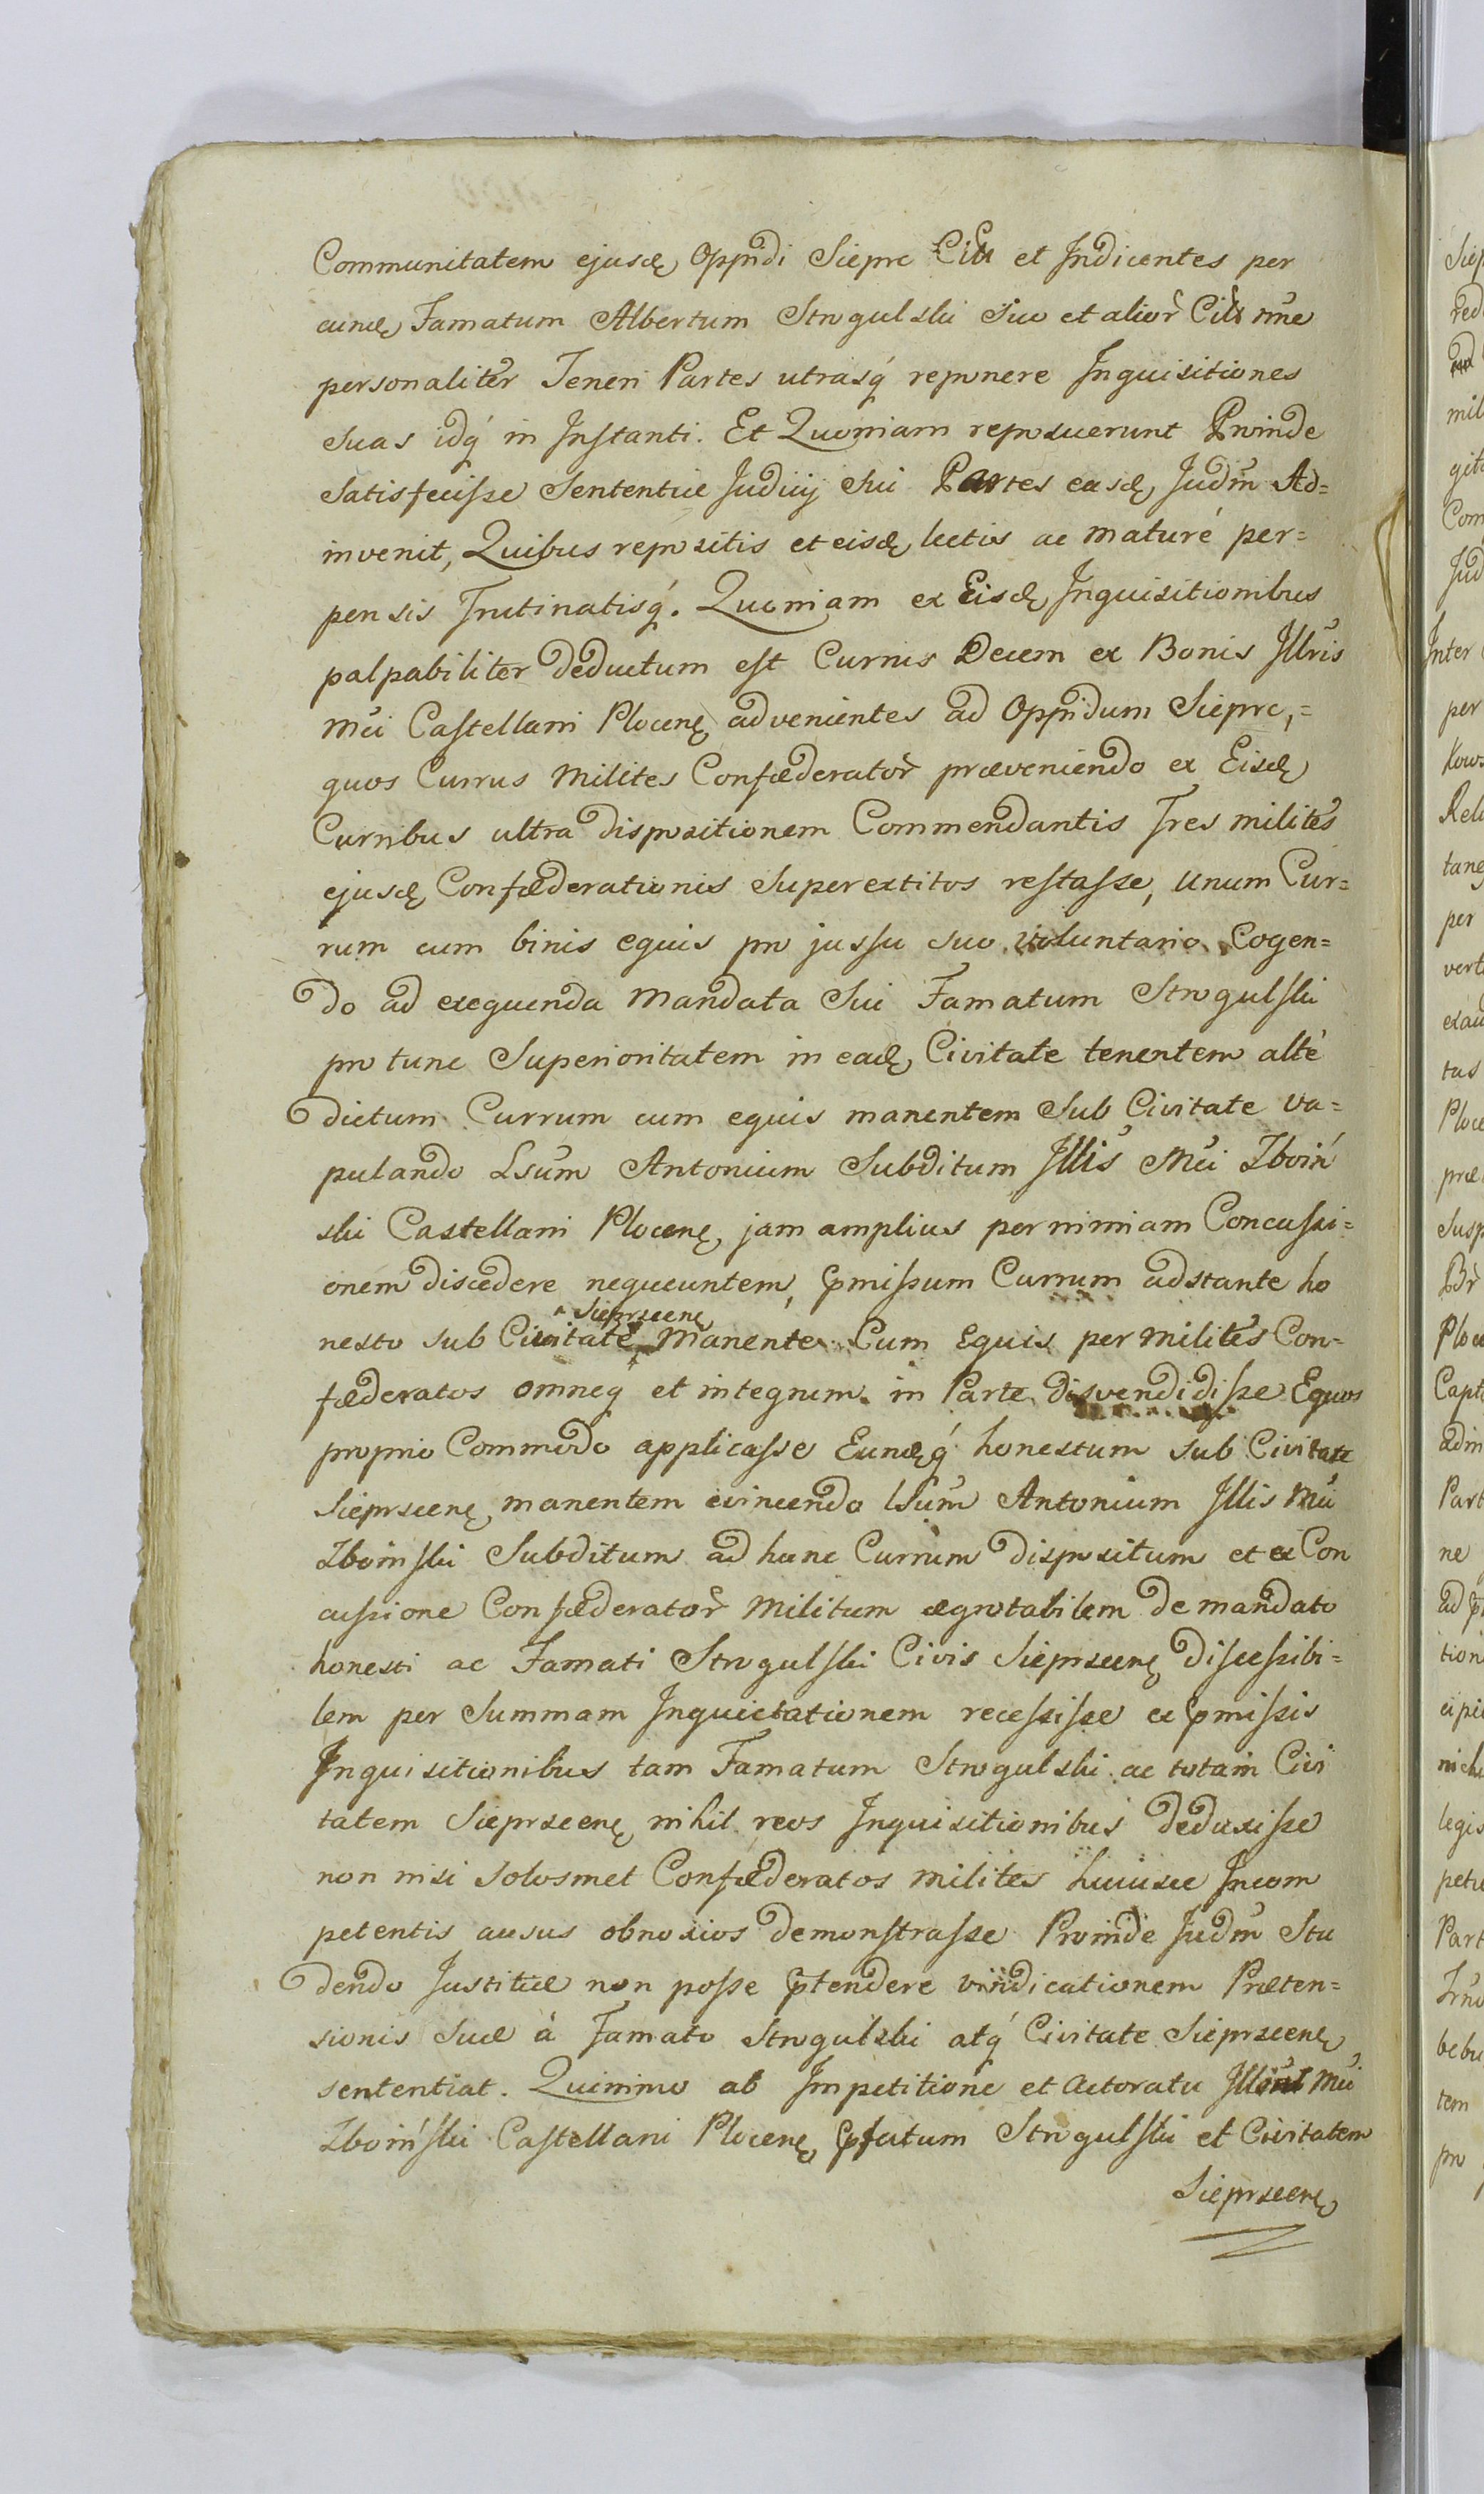 Communitatem ejusd, Oppidi Sieprc Citt et Indicentes per
eund, Famatum Albertum Strogulski Suo et alior Citt nne
personaliter Teneri Partes utrasq́ reponere Inquisitiones
Suas idq́ in Instanti. Et Quoniam reposuerunt Proinde
Satisfecisse Sententiæ Judicij Sui Partes easd, Judm Ad=
invenit, Quibus repositis et eisd, lectis ac maturé per=
pensis Trutinatisq́. Quoniam ex Eisd, Inquisitionibus
palpabiliter deductum est Currus Decem ex Bonis Illris
Mci Castellani Plocen, advenientes ad Oppidum Sieprc,=
quos Currus Milites Confæderator præveniendo ex Eisd,
Curribus ultra dispositionem Commendantis Tres milites
ejusd, Confæderationis Superextitos restasse, Unum Cur=
rum cum binis equis pro jussu suo voluntario Cogen=
do ad exequenda Mandata Sui Famatum Strogulski
pro tunc Superioritatem in ead, Civitate tenentem alté
dictum Currum cum equis manentem Sub Civitate va=
pulando Lsum Antonium Subditum Illis Mci Zboiń
ski Castellani Plocen, jam amplius per nimiam Concussi=
onem discedere nequeuntem, pmissum Currum adstante ho
nesto sub Civitate Sieprscen, Manente Cum Equis per milites Con=
fæderatos omneq et integrum in Parte disvendidisse Equos
proprio Commodo applicasse Eundq́ honestum sub Civitate
Sieprscen, manentem evincendo Lsum Antonium Illis Mci
Zboinski Subditum ad hunc Currum dispositum et ex Con
cussione Confæderator Militum ægrotabilem de mandato
honesti ac Famati Strogulski Civis Sieprscen, discessibi=
lem per Summam Inquietationem recessisse ex pmissis
Inquisitionibus tam Famatum Strogulski ac totam Civi
tatem Sieprscen, nihil reos Inquisitionibus deduxisse
non nisi solosmet Confæderatos milites huiusce Incom
petentis ausus obnoxios demonstrasse Proinde Judm Stu
dendo Justitiæ non posse ptendere vindicationem Præten=
sionis Suæ à Famato Strogulski atq́ Civitate Sieprscen,
sententiat. Quinimo ab Impetitione et Actoratu Mci
Zboiński Castellani Plocen, pfatum Strogulski et Civitatem
Sieprscen,